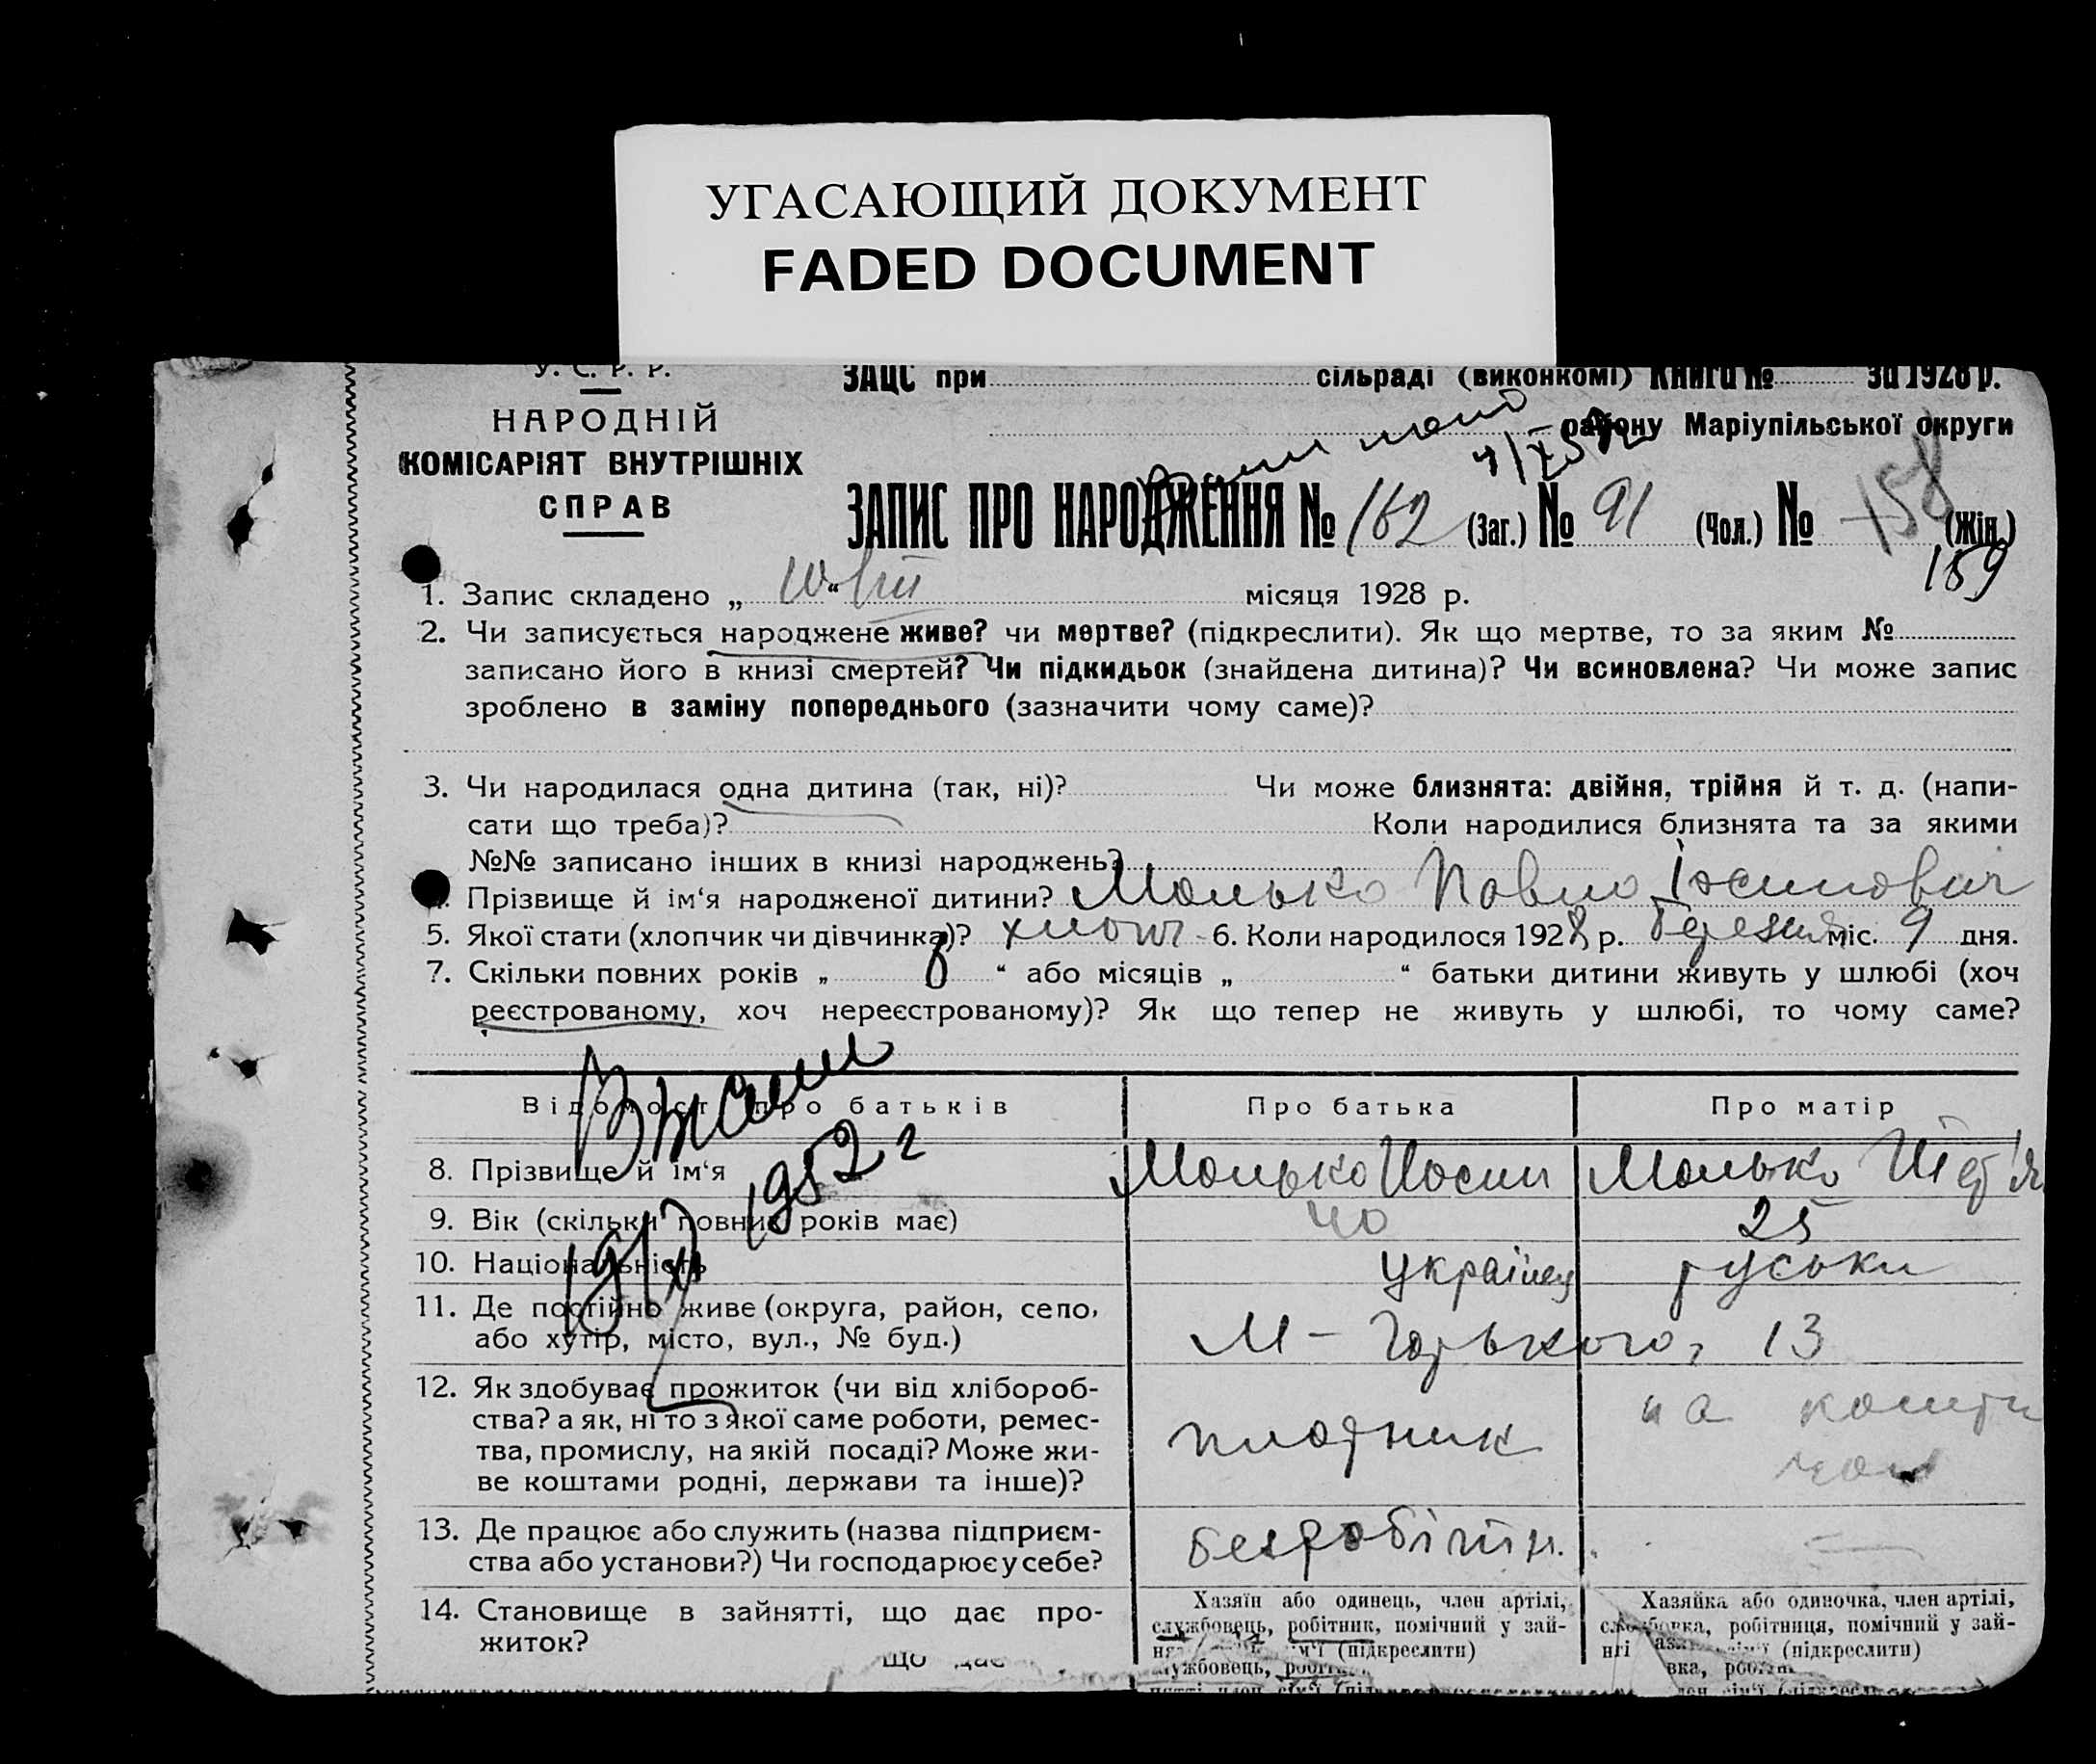 УГАСАЮЩИЙ ДОКУМЕНТ
FADED DOCUMENT
У. С. Р. Р.
ЗАЦС при сільраді (виконкомі) Книга № за 1928 р.
НАРОДНІЙ
району Маріупільської округи
КОМІСАРІЯТ ВНУТРІШНІХ
СПРАВ
ЗАПИС ПРО НАРОДЖЕННЯ № 162 (Заг.) № 91 (Чол.) № 158 (Жін.)
159
1. Запис складено „ “ місяця 1928 р.
2. Чи записується народжене живе? чи мертве? (підкреслити). Як що мертве, то за яким №
записано його в книзі смертей? Чи підкидьок (знайдена дитина)? Чи всиновлена? Чи може запис
зроблено в заміну попереднього (зазначити чому саме)?
3. Чи народилася одна дитина (так, ні)? Чи може близнята: двійня, трійня й т. д. (напи-
сати що треба)? Коли народилися близнята та за якими
№№ записано інших в книзі народжень?
Прізвище й ім‘я народженої дитини? Молько Павло Іосипович
5. Якої стати (хлопчик чи дівчинка)? хлопч 6. Коли народилося 1928 р. березня міс. 9 дня.
7. Скільки повних років „ 8 “ або місяців „ “ батьки дитини живуть у шлюбі (хоч
реєстрованому, хоч нереєстрованому)? Як що тепер не живуть у шлюбі, то чому саме?
Відомості про батьків Про батька Про матір
1952 г
8. Прізвище й ім‘я Молько Йосип Молько
9. Вік (скільки повних років має) 40 25
10. Національність українец руськи
11. Де постійно живе (округа, район, село,
або хутір, місто, вул., № буд.) М – Горького, 13
12. Як здобуває прожиток (чи від хлібороб-
ства? а як, ні то з якої саме роботи, ремес-
тва, промислу, на якій посаді? Може жи-
ве коштами родні, держави та інше)? плотник на кошти чол
13. Де працює або служить (назва підприєм-
ства або установи?) Чи господарює у себе? безробітн. —
14. Становище в зайнятті, що дає про-
житок?
Хазяїн або одинець, член артілі,
службовець, робітник, помічний у зай-
(підкреслити)
Хазяйка або одиночка, член артілі,
робітниця, помічний у зай-
(підкреслити)